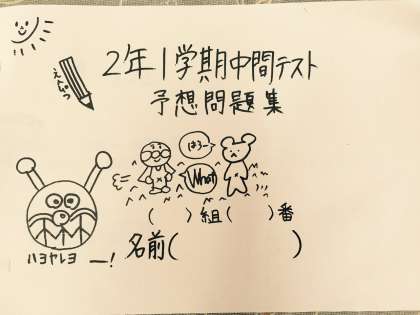 2年1学期中間テスト
予想問題集
えんぴつ
はろー
What
(　)組(　)番
名前(　　　)
ハヨヤレヨ
ー!